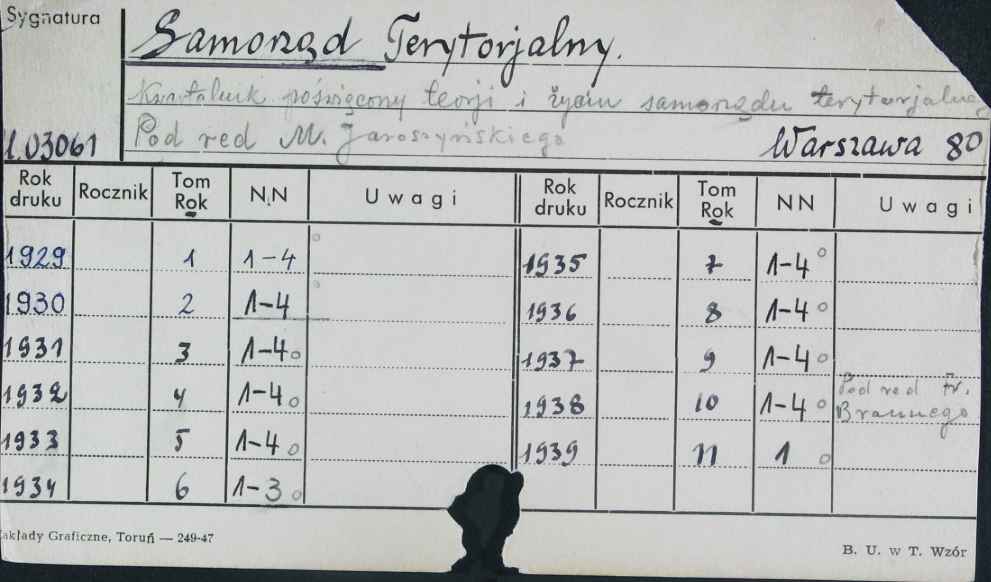 Sygnatura
Samorząd Terytorjalny.
Kwartalnik poświęcony teorji i życiu samorządu terytorjalneg
Pod red M. Jaroszyńskiego
03061 Warszawa 80
Rok druku Rocznik Tom Rok N.N Uwagi Rok druku Rocznik Tom Rok NN Uwagi
1929 1 1-4 1935 7 1-4
1930 2 1-4 1936 8 1-4
1931 3 1-4 1937 9 1-4
1932 4 1-4 1938 10 1-4 Pod red Fr. Braunego
1933 5 1-4 1939 11 1
1934 6 1-3
akłady Graficzne, Toruń — 249-47
B. U. w T. Wzór